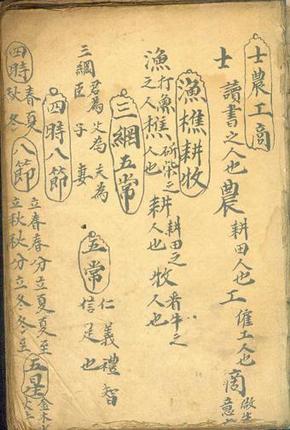 士農工商
士 讀書之人也 農 耕田人也 工 僱工人也 商 做生意
漁樵耕牧
漁 打魚之人 樵 斫柴之人也 耕 耕田之人也 牧 看牛之人也
三綱五常
三綱 君為臣 父為子 夫為妻 五常 仁義禮智信足也
四時八節
四時 春夏秋冬 八節 立春春分立夏夏至立秋秋分立冬冬至 五星 金木